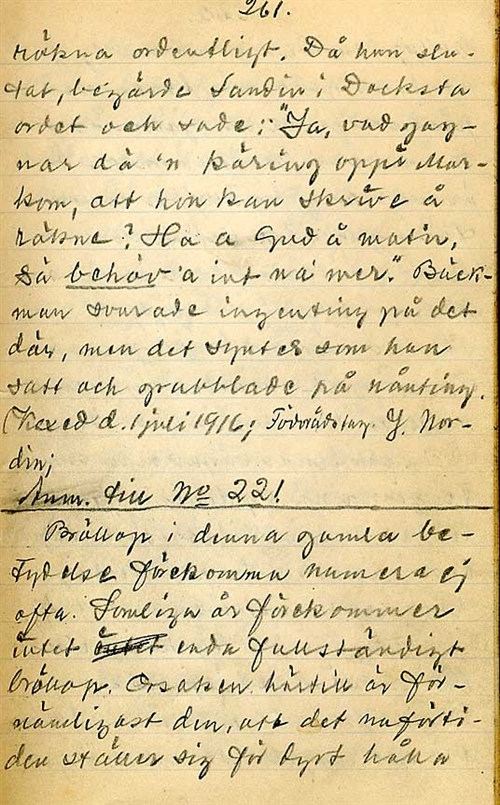 261.
räkna ordentligt. Då han slu-
tat, begärde Sandin i Docksta
ordet och sade: "Ja, vad gag-
nar dä 'n käring oppi Mar-
kom, att hon kan skrive å
räkne? Ha a Gud å matn,
så behöv 'a int nå mer." Bäck-
man svarade ingenting på det
där, men det syntes som han
satt och grubblade på nånting.
d. 1 juli 1916; Y. Nor-
din;
Anm. till No 221.
Bröllop i denna gamla be-
tydelse förekomma numera ej
ofta. Somliga år förekommer
intet enda fullständigt
bröllop. Orsaken härtill är för-
nämligast den, att det nuförti-
den ställer sig för dyrt hålla